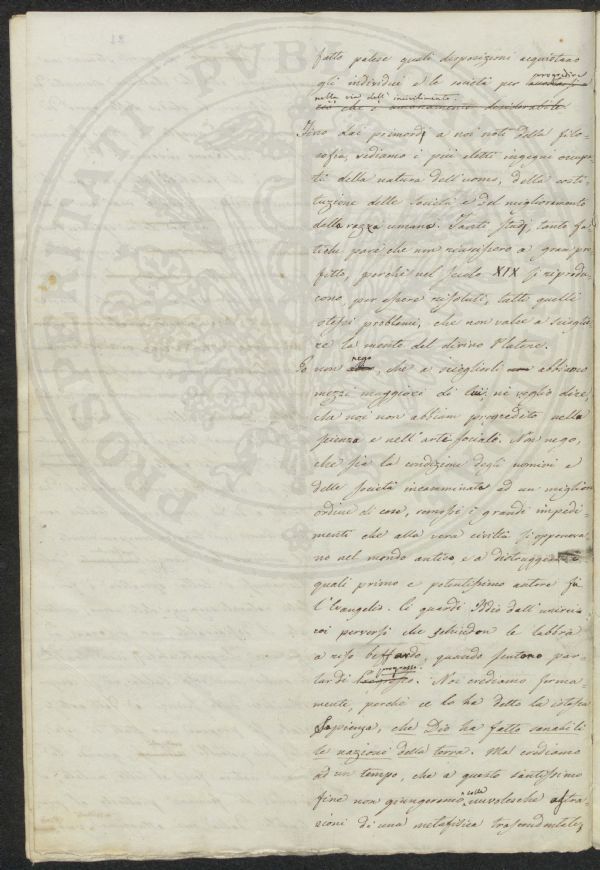 fatto palese quali disposizioni acquistano
gli individui e le società per progredire
nella via dell'incivilimento.
ciò che è umanamente desiderabile
Fino dai primordj a noi noti della filo-
sofia, vediamo i più eletti ingegni occupa-
ti della natura dell'uomo, della costi-
tuzione delle società e del miglioramento
della razza umana. Tanti studj, tante fa-
tiche pare che non riuscissero a gran pro-
fitto, perchè nel secolo XIX si riprodu-
cono per essere risoluti, tutti quelli
stessi problemi, che non valse a scioglie-
re la mente del divino Platone.
Io non nego, che a scioglierli abbiamo
mezzi maggiori di lui nè voglio dire,
che noi non abbiam progredito nella
scienza e nell'arte sociale. Non nego,
che sia la condizione degli uomini e
delle società incamminata ad un miglior
ordine di cose, remossi i grandi impedi-
menti che alla vera civiltà si opponeva-
no nel mondo antico e a distruggere i
quali primo e potentissimo autore fu
l'Evangelio. Ci guardi Iddio dall'unirci a
coi perversi che schiudon le labbra
a riso beffardo, quando sentono par-
lar di progresso. Noi crediamo ferma-
mente, perchè ce lo ha detto la istessa
Sapienza, che Dio ha fatto sanabili
le nazioni della terra. Ma crediamo
ad un tempo, che a questo santissimo
fine non giungeremo colle nuvolesche astra-
zioni di una metafisica trascendentale,
PROSPERITATI PVBL